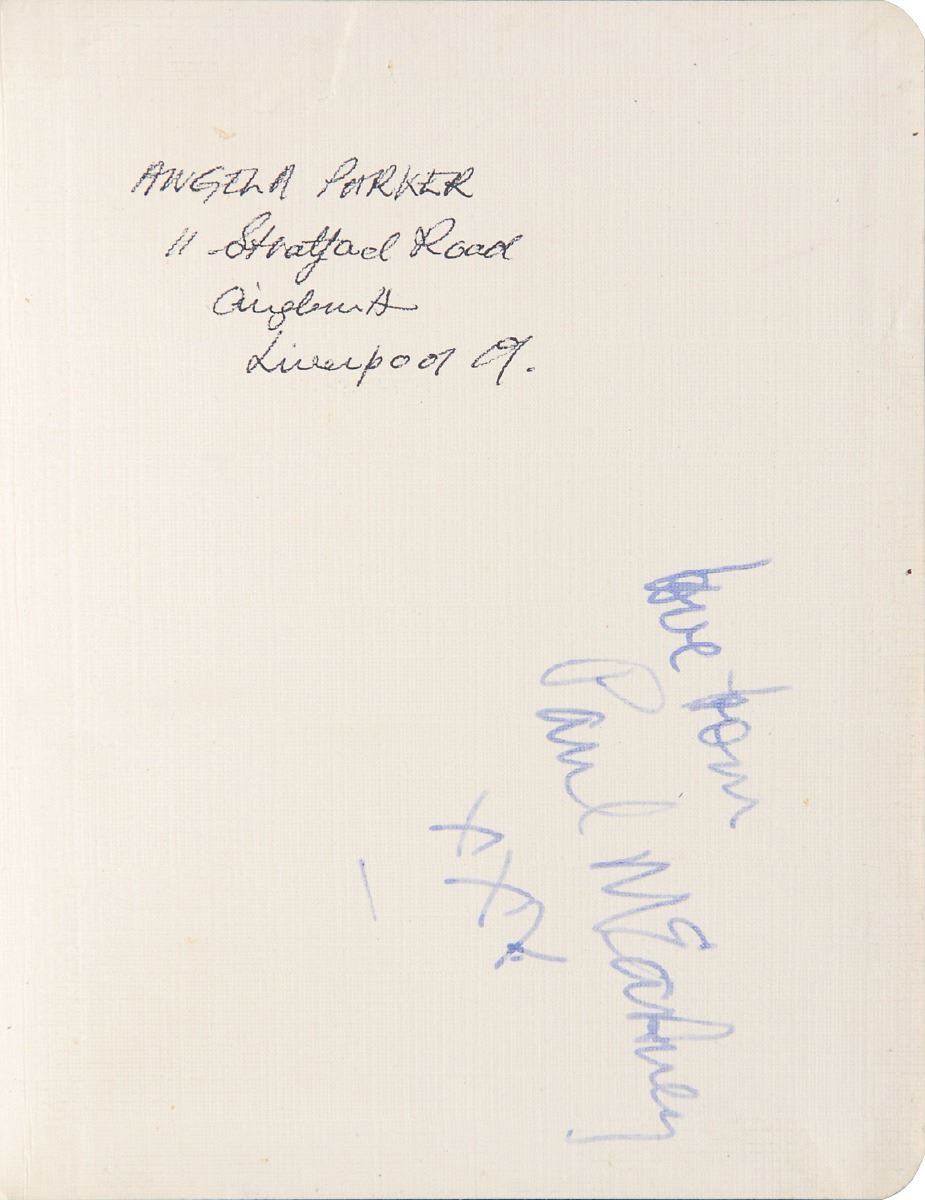 ANGELA PARKER
11 Stratford Road
Aigburth
Liverpool 19.
love from
Paul McCartney
XXX